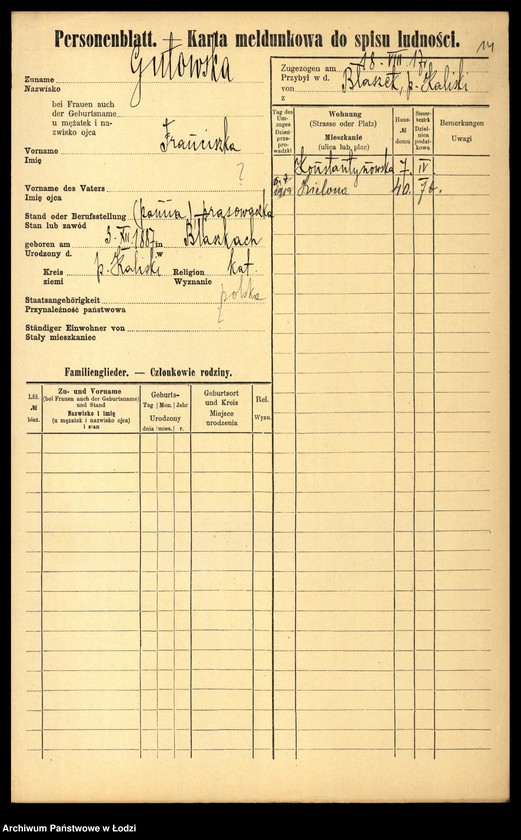 Personenblatt. — Karta meldunkowa do spisu ludności.
14
Zuname
Nazwisko
Gutowska
bei Frauen auch
der Geburtsname
u mężatek i na-
zwisko ojca
Vorname
Imię
Franciszka
Vorname des Vaters
Imię ojca
?
Stand oder Berufsstellung
Stan lub zawód
(panna) prasowaczka
geboren am 3. XII 1887 in Błaszkach
Urodzony d. w
Kreis p. Kaliski Religion kat.
ziemi Wyznanie
Staatsangehörigkeit
Przynależność państwowa
polska
Ständiger Einwohner von
Stały mieszkaniec
Zugezogen am 18. VIII 17
Przybył w d.
von Błaszek, p. Kaliski
z
Tag des
Um-
zuges
Dzień
prze-
pro-
wadzki
Wohnung
(Strasse oder Platz)
Mieszkanie
(ulica lub plac)
Haus-
№
domu
Steuer-
bezirk
Dziel-
nica
podat-
kowa
Bemerkungen
Uwagi
Konstantynowska 7. IV.
1919 Zielona 40. 7
Familienglieder. — Członkowie rodziny.
Lfd.
№
bież.
Zu- und Vorname
(bei Frauen auch der Geburtsname)
und Stand
Nazwisko i imię
(u mężatek i nazwisko ojca)
i stan
Geburts-
Tag Mon. Jahr
Urodzony
dnia mies. r.
Geburtsort
und Kreis
Miejsce
urodzenia
Rel.
Wyzn.
Archiwum Państwowe w Łodzi